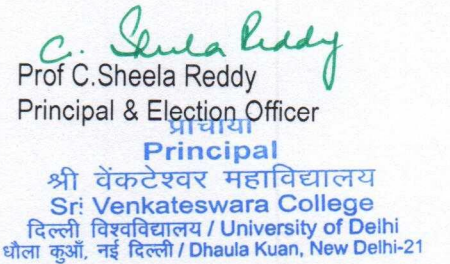 C. Sheela Reddy
Prof C.Sheela Reddy
Principal & Election Officer
प्राचार्या
Principal
श्री वेंकटेश्वर महाविद्यालय
Sri Venkateswara College
दिल्ली विश्वविद्यालय / University of Delhi
धौला कुआँ, नई दिल्ली / Dhaula Kuan, New Delhi-21